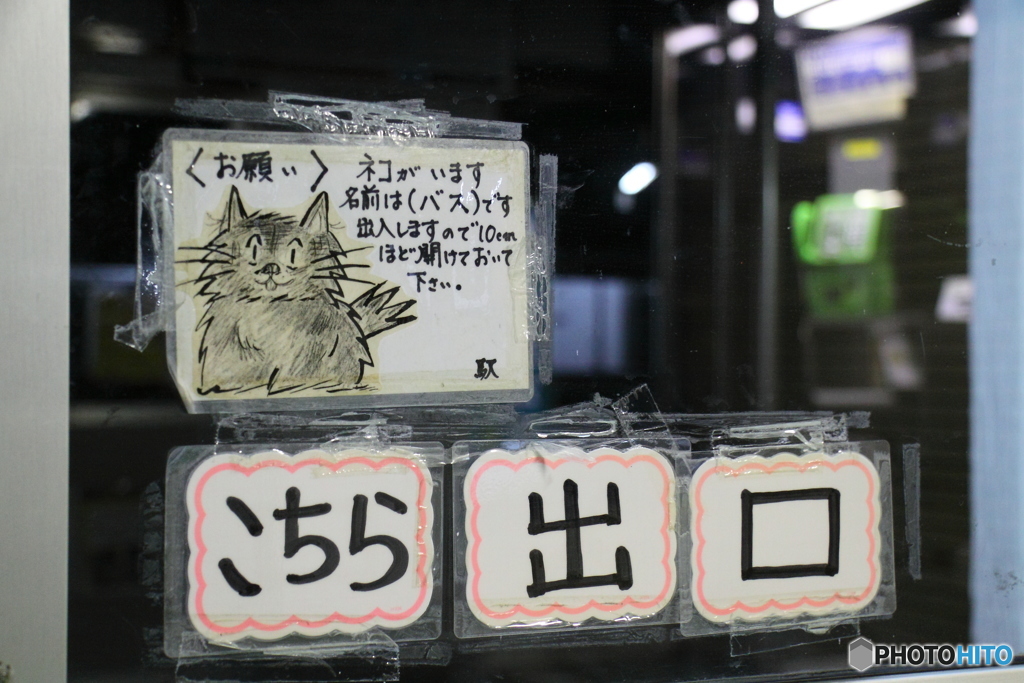 〈お願い〉
ネコがいます
名前は(バス)です
出入しますので10cm
ほど開けておいて
下さい。
駅
こちら
出
口
PHOTOHITO